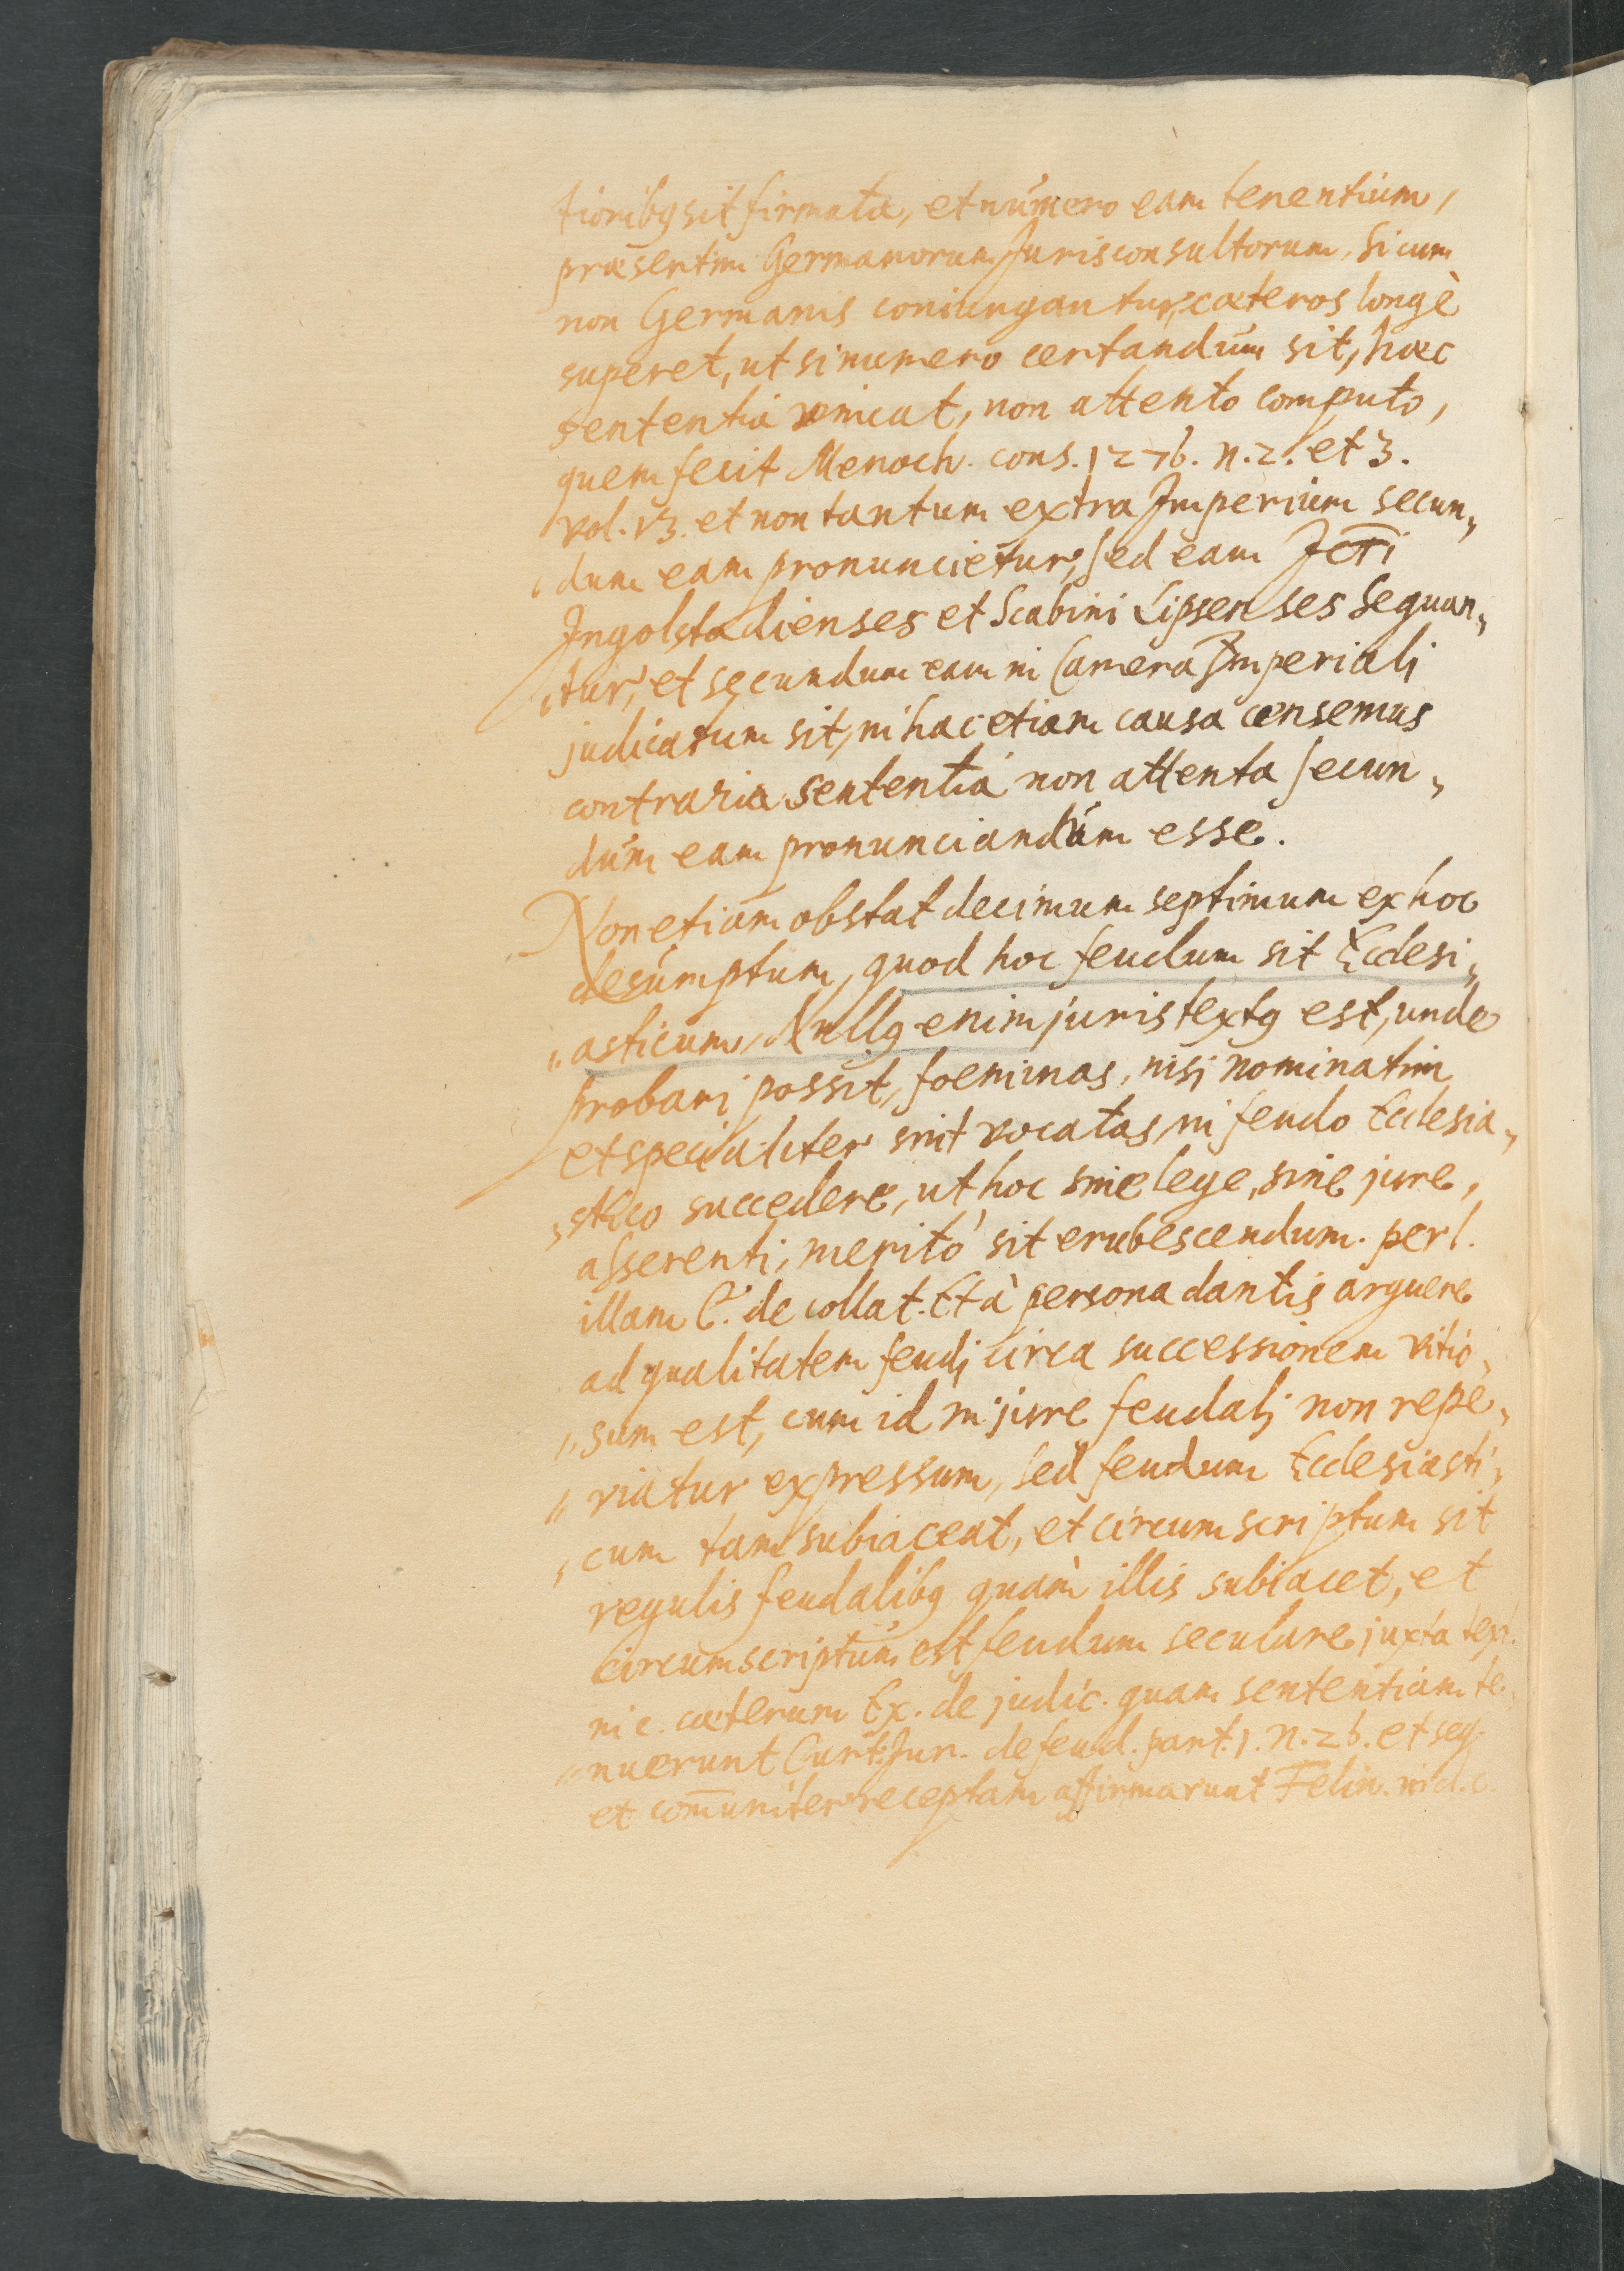 tionibꝫ sit firmata, et número eam tenentium,
præsertim Germanorum Jurisconsultorum, si cum
non Germanis coniungantur, cæteros longè
superet, ut si numero certandúm sit, hæc
sententia vincat, non attento computo,
quem fecit Menoch. cons. 1276. n. 2. et 3.
vol. 13. et non tantum extra Imperium secun„
„dum eam pronuncietur, sed eam Jcti
Ingolstadienses et Scabini Lipsenses sequan„
„tur, et secundum eam in Camera Imperialj
judicatum sit, in hac etiam causa censemus
contraria sententiá non attenta secun„
dúm eam pronunciandúm esse.
Non etiam obstat decimum septimum ex hoc
desúmptum, quod hoc feudum sit Ecclesi„
„asticum, Nullꝫ enim juris textꝫ est, unde
probari possit, foeminas, nisj nominatim
et specialiter sint vocatas, in feudo Ecclesia„
„stico succedere, ut hoc sine lege, sine jure,
asserenti, meritò sit erubescendum. per l.
illam C. de collat. Et à persona dantis arguere
ad qualitatem feudj circa successionem vitio„
„sum est, cum id in jure feudalj non repe„
„riatur expressum, sed feudum Ecclesiasti„
„cum tam subiaceat, et circumscriptum sit
regulis feudalibꝫ quàm illis subiacet, et
circumscriptúm est feudum seculare juxta text.
in c. cæterum Ex. de judic. quam sententiam te„
„nuerunt Curt: Jun. de feud. part. 1. n. 26. et seq.
et com̄uniter receptam affirmarunt Felin. in d. c.